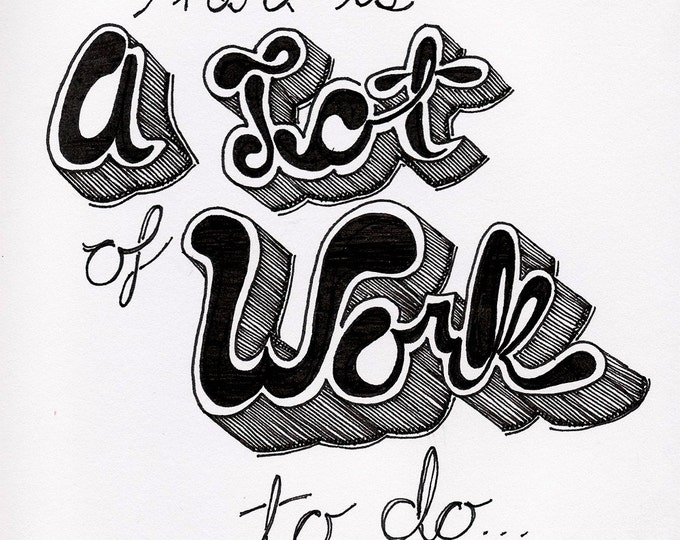 is
A Lot
of
Work
to do...